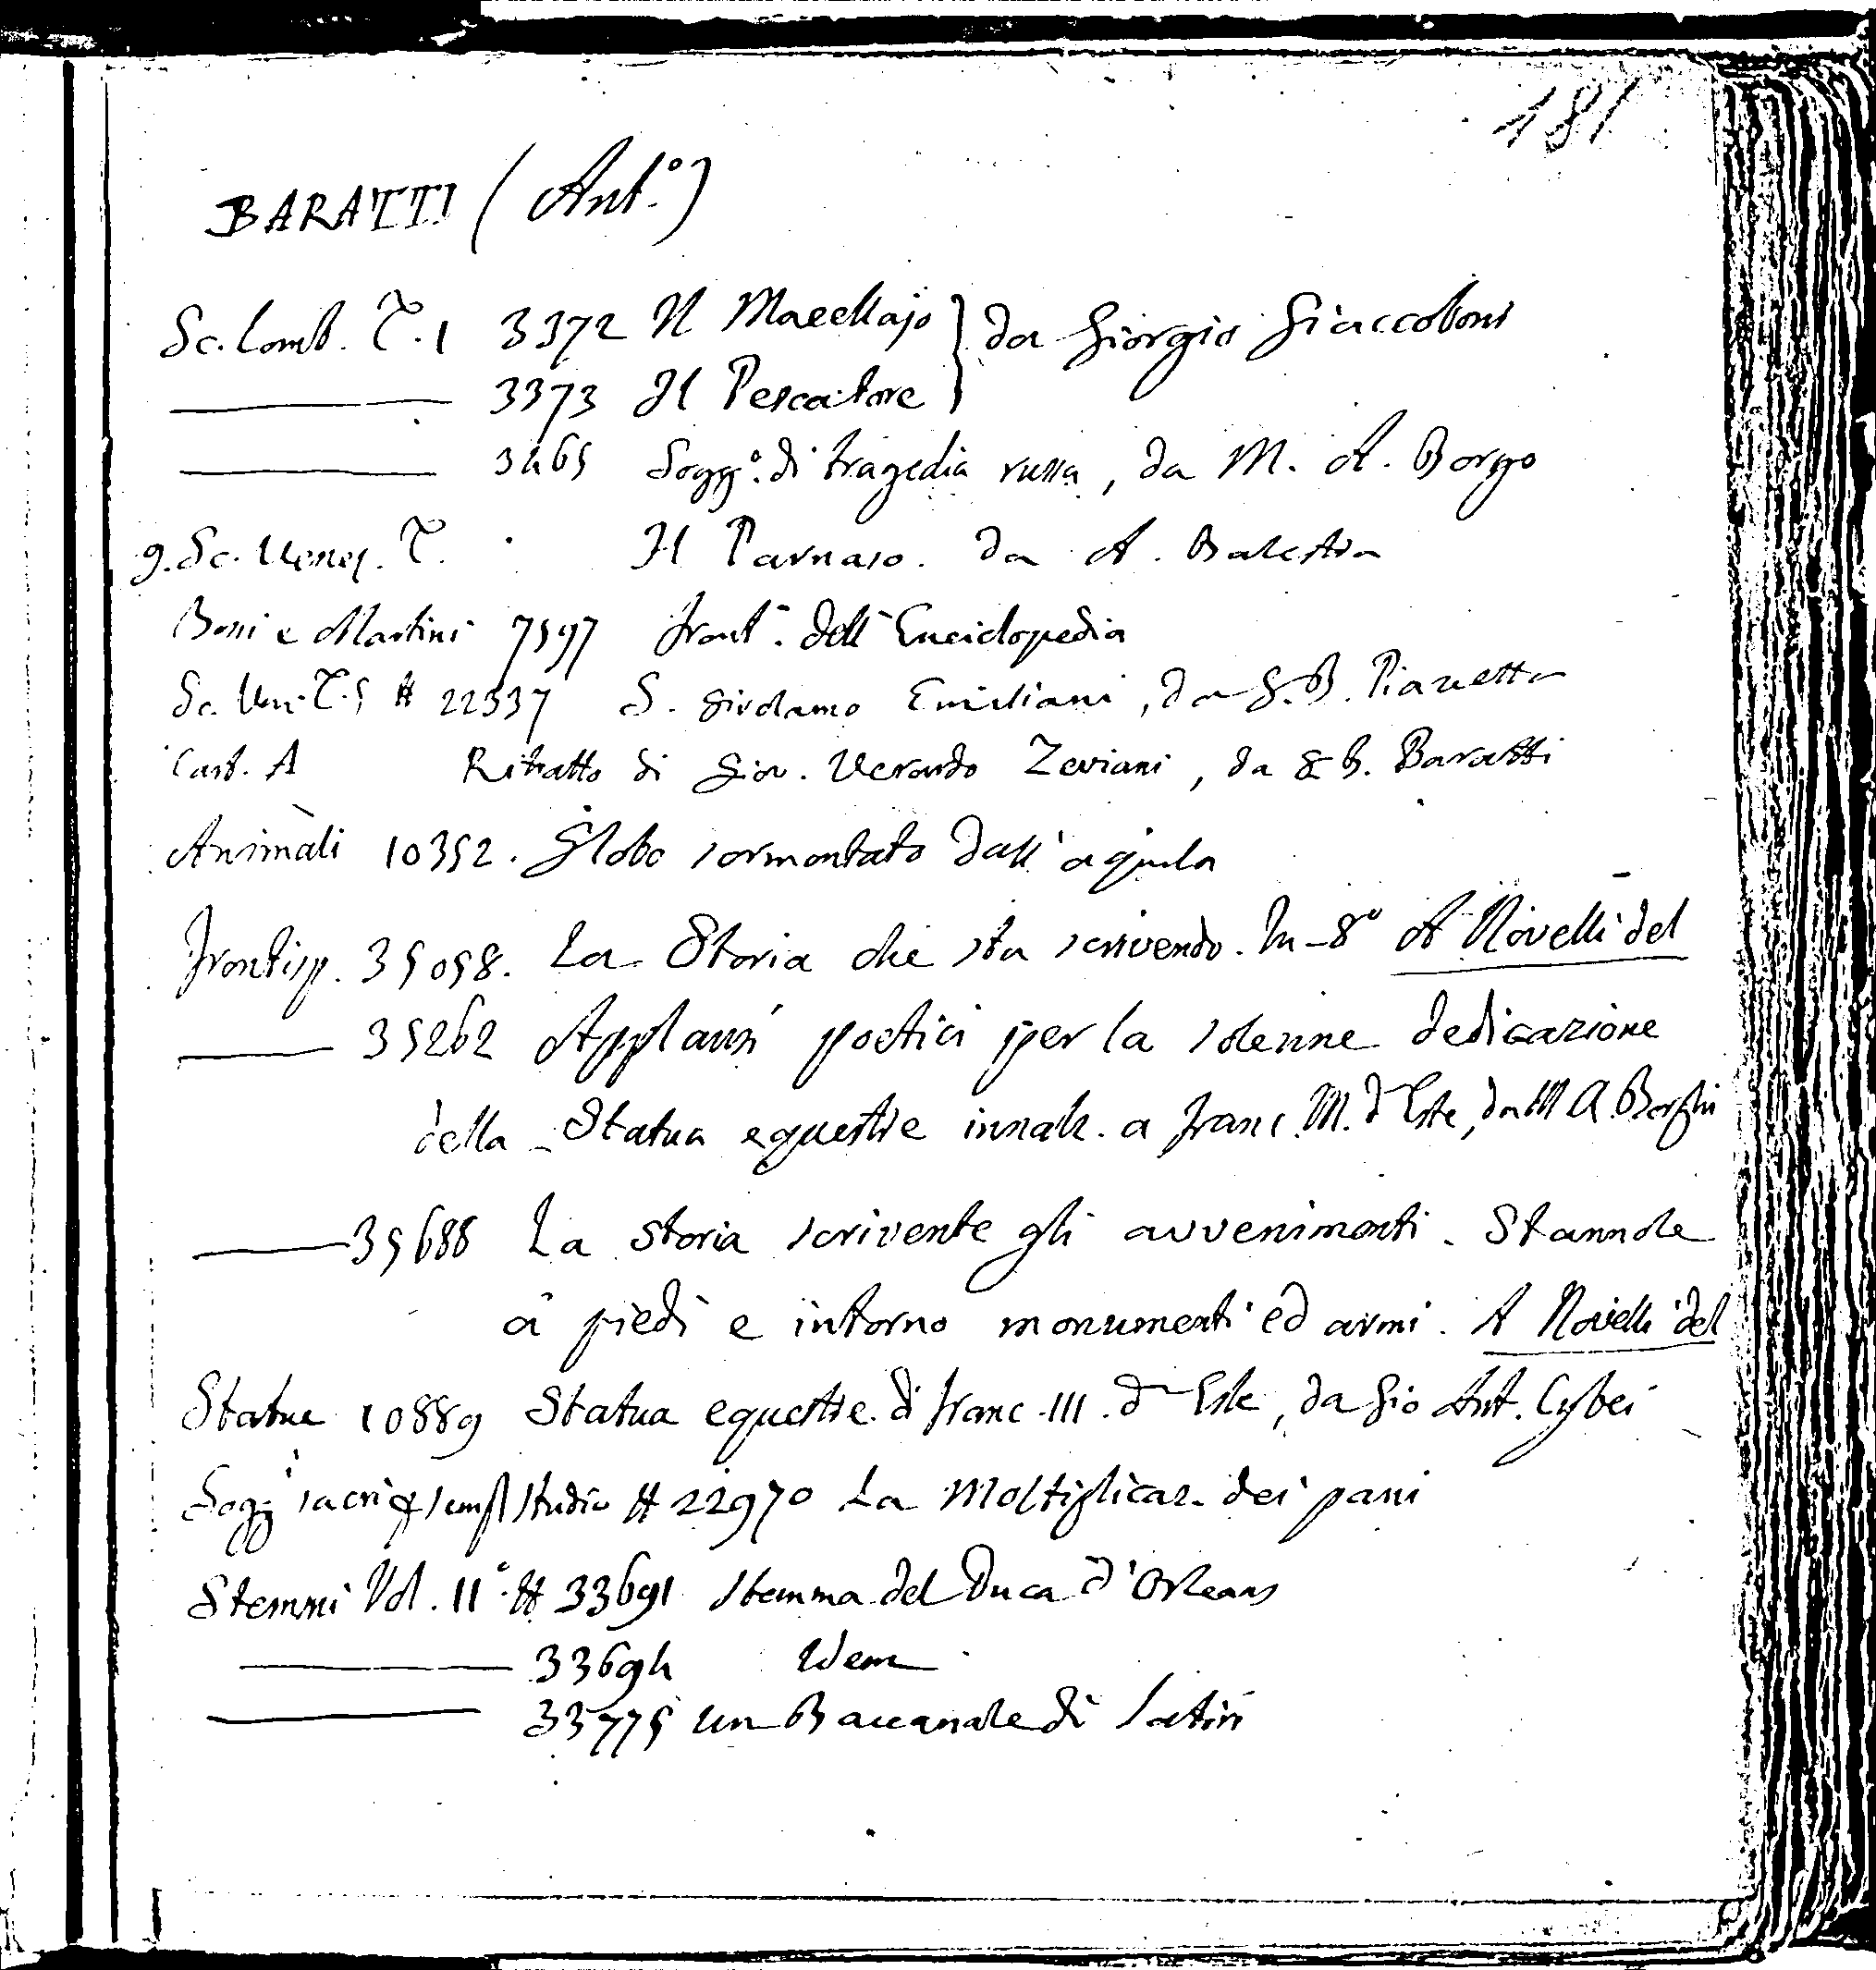 181
BARATTI (Ant.°)
Sc. Lomb. T. 1 3372 Il Macellajo } da Giorgio Giaccoboni
3373 Il Pescatore
3465 Sogg.° di tragedia russa, da M. A. Borgo
g. Sc. Venez. T. Il Parnaso. da A. Balestra
Boni e Martini 7597 front. dell'Enciclopedia
Sc. Ven. T. 5 # 22337 S. Girolamo Emiliani, da G. B. Piazzetta
Cart. A Ritratto di Giov. Verardo Zeviani, da G B. Baratti
Animali 10352. Globo sormontato dall'aquila
Frontisp. 35058. La Storia che sta scrivendo. In-8° A Novelli del
35262 Applausi poetici per la solenne dedicazione
della Statua equestre innalz. a Franc. M. d'Este, da M A.
35688 La storia scrivente gli avvenimenti. Stannole
a' piedi e intorno monumenti ed armi. A Novelli del
Statue 10889 Statua equestre di Franc. III. d'Este, da Gio Ant. Cybei
Sogg. sacri studio # 22970 La Moltiplicaz. dei pani
Stemmi Vol. II° # 33691 Stemma del Duca d'Orleans
33694 Idem
33775 un Baccanale di satiri